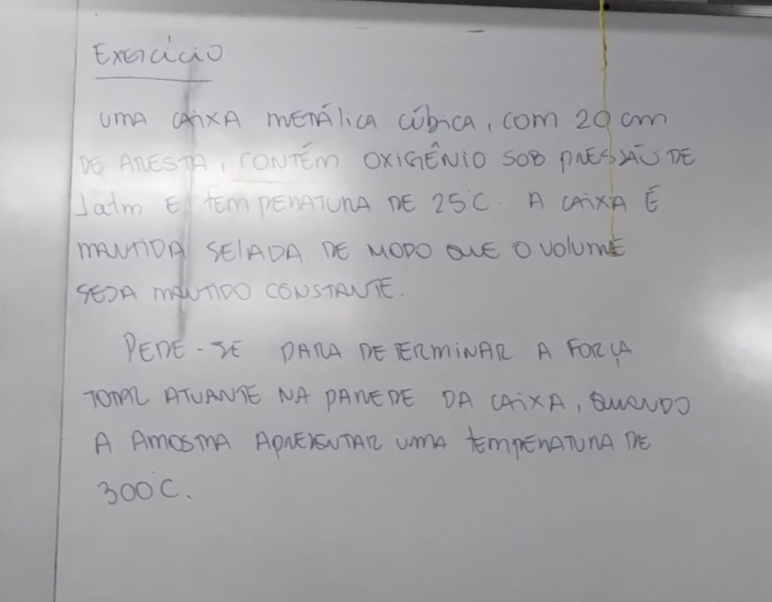 Exercício
UMA CAIXA METÁLICA CÚBICA, COM 20 cm
DE ARESTA, CONTÉM OXIGÊNIO SOB PRESSÃO DE
1atm E TEMPERATURA DE 25°C. A CAIXA É
MANTIDA SELADA DE MODO QUE O VOLUME
SEJA MANTIDO CONSTANTE.
PEDE-SE PARA DETERMINAR A FORÇA
TOTAL ATUANTE NA PAREDE DA CAIXA, QUANDO
A AMOSTRA APRESENTAR UMA TEMPERATURA DE
300°C.